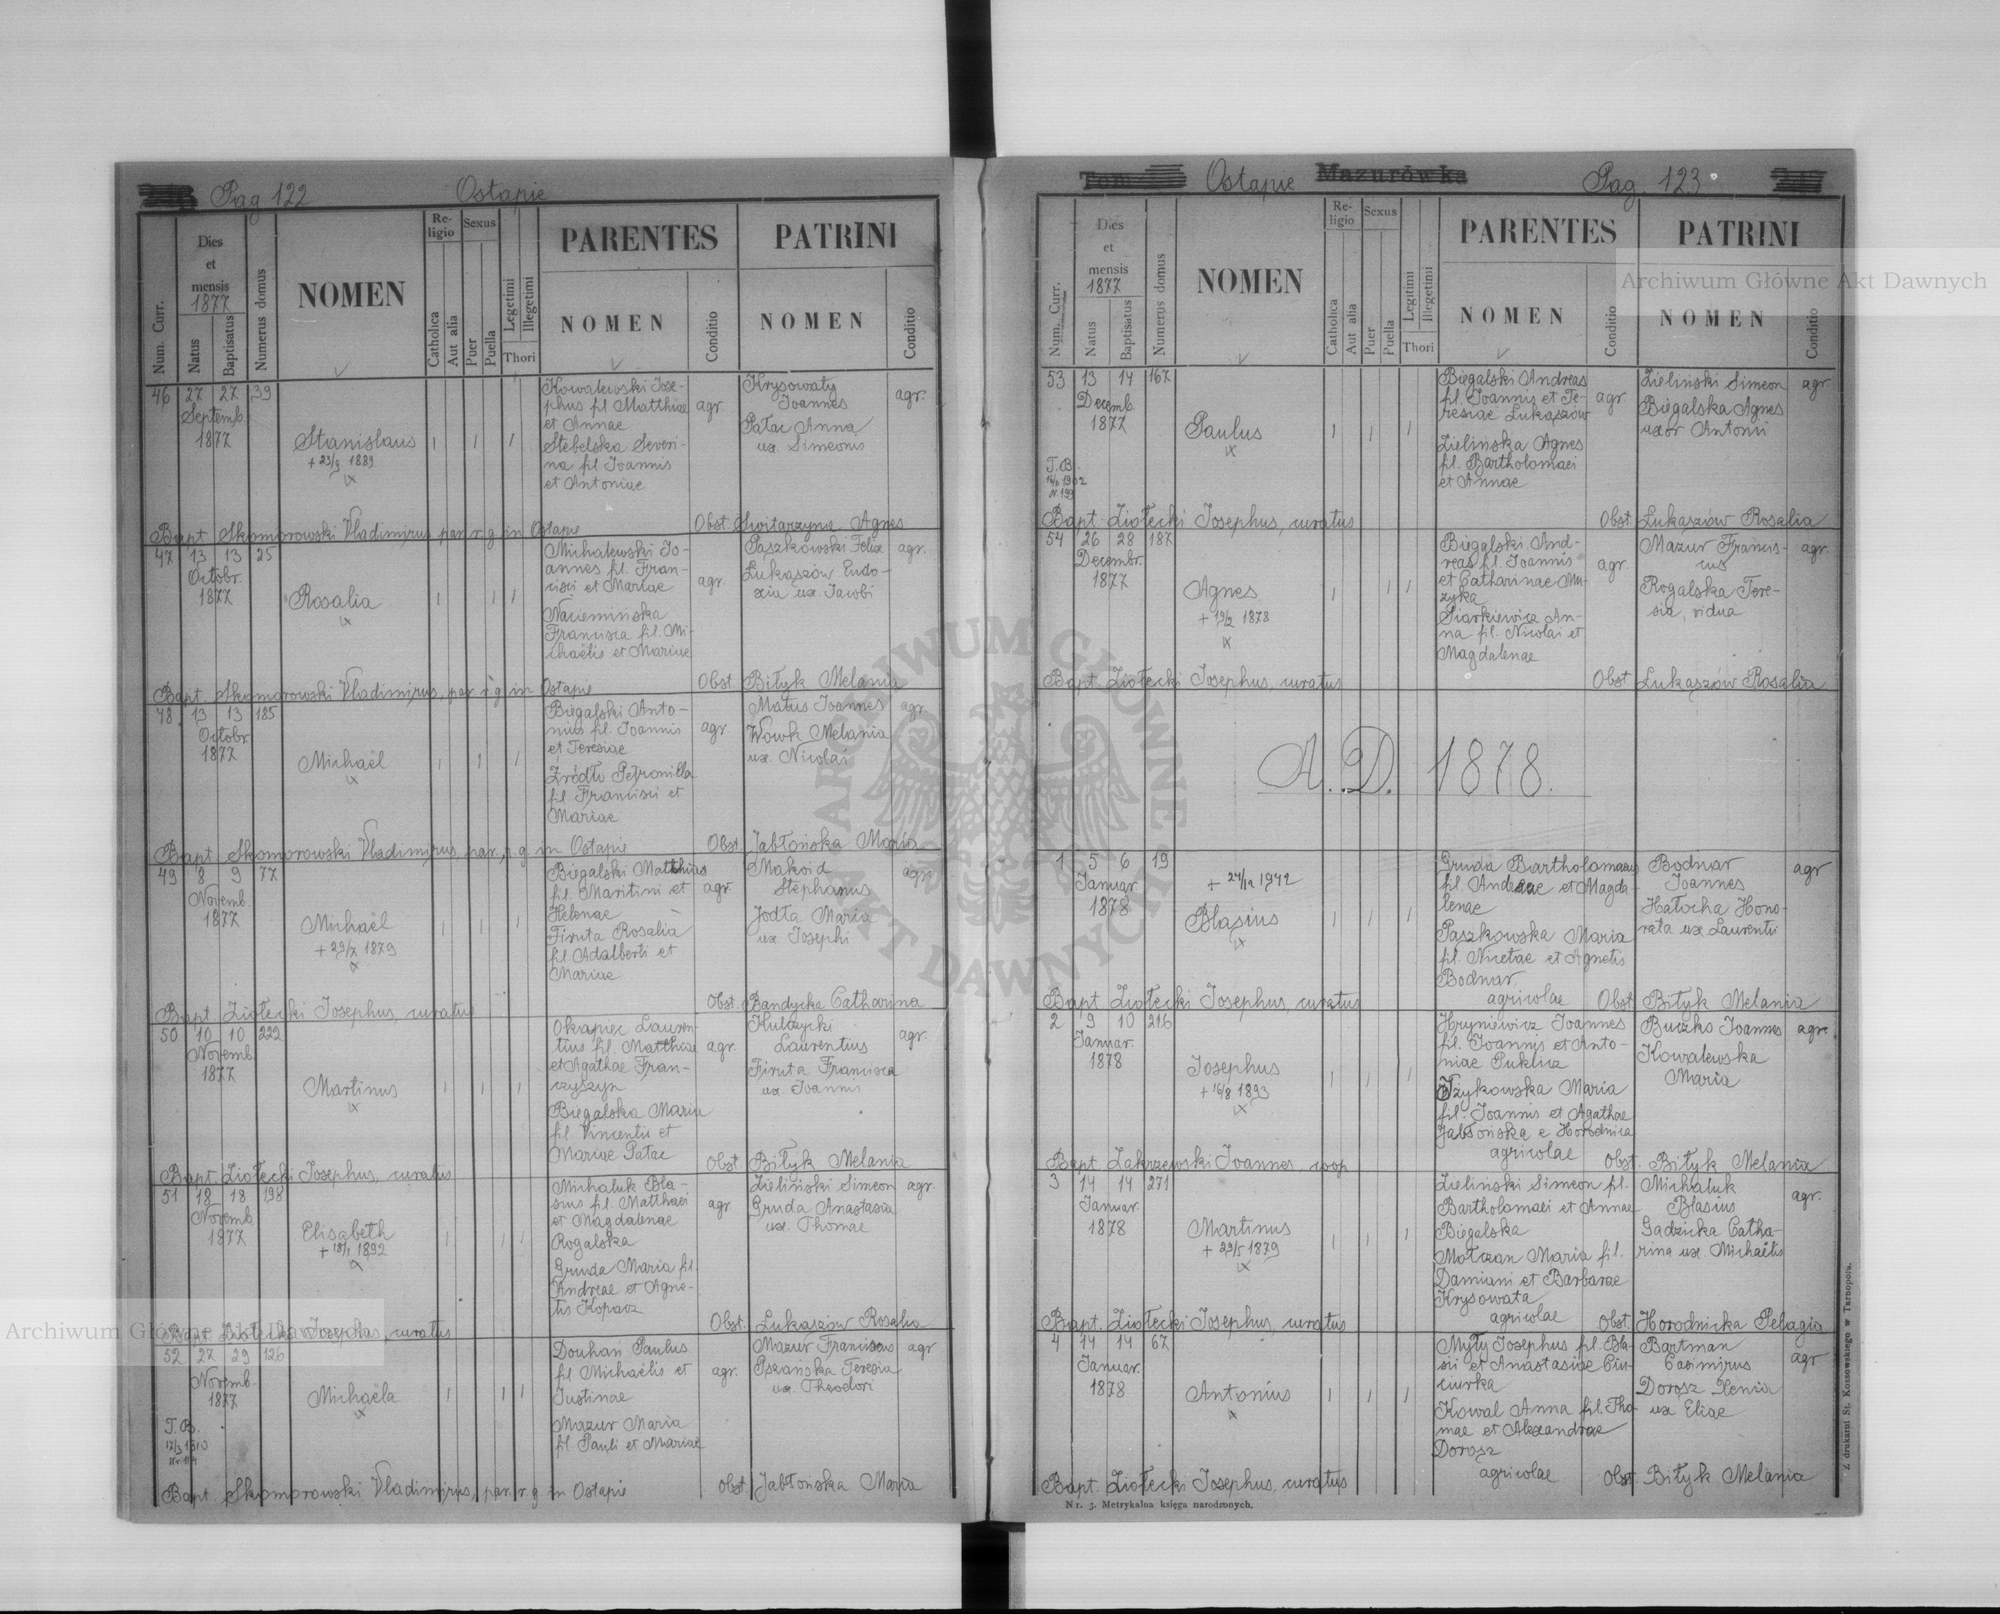 Pag 122
Ostapie
Num. Curr.
Dies
et
mensis
1877
Natus
Baptisatus
Numerus domus
NOMEN
Re-
ligio
Catholica
Aut alia
Sexus
Puer
Puella
Legetimi
Illegetimi
Thori
PARENTES
NOMEN
Conditio
PATRINI
NOMEN
Conditio
46 27 27 39
Septemb.
1877
Stanislaus
+ 23/9 1889
Kowalewski Jose-
phus fil Matthiae
et Annae
Stebelska Severi-
na fil Joannis
et Antoniae
agr.
Krysowaty
Joannes
Pałac Anna
ux. Simeonis
agr.
Bapt. Skomorowski Vladimirus, par. r. g. in Ostapie
Obst. Switarzyna Agnes
47 13 13 25
Octobr.
1877
Rosalia
Michalewski Jo-
annes fil. Fran-
cisci et Mariae
Naciemińska
Francisca fil. Mi-
chaëlis et Mariae
agr.
Paszkowski Felix
Łukaszów Eudo-
xia ux. Jacobi
agr.
Bapt. Skomorowski Vladimirus, par. r. g. in Ostapie
Obst. Biłyk Melania
48 13 13 185
Octobr
1877
Michaël
Biegalski Anto-
nius fil. Joannis
et Teresiae
Źródło Petronilla
fil. Francisci et
Mariae
agr
Matus Joannes
Wowk Melania
ux. Nicolai
agr.
Bapt. Skomorowski Vladimirus, par. r. g. in Ostapie
Obst. Jabłońska Maria
49 8 9 77
Novemb.
1877
Michaël
+ 29/7 1879
Biegalski Matthias
fil. Martini et
Helenae
Firuta Rosalia
fil. Adalberti et
Mariae
agr.
Makoid
Stephanus
Jodła Maria
ux. Josephi
agr.
Bapt. Ziołecki Josephus, curatus
Obst. Bandycka Catharina
50 10 10 222
Novemb.
1877
Martinus
Okapiec Lauren-
tius fil. Matthiae
et Agathae Fran-
czyszyn
Biegalska Maria
fil Vincentii et
Mariae Pałac
agr.
Kulczycki
Laurentius
Firuta Francisca
ux Joannis
agr.
Bapt. Ziołecki Josephus, curatus
Obst. Biłyk Melania
51 18 18 198
Novemb.
1877
Elisabeth
+ 18/1 1892
Michaluk Bla-
sius fil. Matthaei
et Magdalenae
Rogalska
Gruda Maria fil.
Andreae et Agne-
tis Kopacz
agr
Zieliński Simeon
Gruda Anastasia
ux. Thomae
agr.
Bapt. Ziołecki Josephus, curatus
Obst. Łukaszów Rosalia
52 27 29 126
Novemb.
1877
Michaëla
T. B.
Douhan Paulus
fil Michaëlis et
Justinae
Mazur Maria
fil Pauli et Mariae
agr.
Mazur Franciscus
Teresia
ux. Theodori
agr
Bapt. Skomorowski Vladimirus, par. r. g. in Ostapie
Obst. Jabłońska Maria
Tom
Ostapie
Mazurówka
Pag. 123
Num. Curr.
Dies
et
mensis
1877
Natus
Baptisatus
Numerus domus
NOMEN
Re-
ligio
Catholica
Aut alia
Sexus
Puer
Puella
Legitimi
Illegetimi
Thori
PARENTES
NOMEN
Conditio
PATRINI
NOMEN
Conditio
53 13 14 167
Decemb.
1877
Paulus
T. B.
Biegalski Andreas
fil. Joannis et Te-
resiae Łukaszów
Zielińska Agnes
fil. Bartholomaei
et Annae
agr.
Zieliński Simeon
Biegalska Agnes
uxor Antonii
agr.
Bapt. Ziołecki Josephus, curatus
Obst. Łukaszów Rosalia
54 26 28 187
Decembr.
1877
Agnes
+ 19/2 1878
Biegalski And-
reas fil. Joannis
et Catharinae Mu-
zyka
Siarkiewicz An-
na fil. Nicolai et
Magdalenae
agr.
Mazur Francis-
cus
Rogalska Tere-
sia, vidua
agr.
Bapt. Ziołecki Josephus, curatus
Obst Łukaszów Rosalia
A. D. 1878.
1 5 6 19
Januar.
1878
+ 24/12 1942
Blasius
Gruda Bartholomaeus
fil. Andreae et Magda-
lenae
Paszkowska Maria
fil. Nicetae et Agnetis
Bodnar,
agricolae
Bodnar
Joannes
Hałucha Hono-
rata ux Laurentii
agr
Bapt. Ziołecki Josephus, curatus
Obst. Biłyk Melania
2 9 10 216
Januar.
1878
Josephus
+ 16/8 1893
Hryniewicz Joannes
fil. Joannis et Anto-
niae Puklicz
Tżykowska Maria
fil. Joannis et Agathae
Jabłońska e Horodnica
agricolae
Buczko Joannes
Kowalewska
Maria
agr.
Bapt. Zakrzewski Joannes, coop.
Obst. Biłyk Melania
3 14 14 271
Januar.
1878
Martinus
+ 29/5 1879
Zieliński Simeon fil.
Bartholomaei et Annae
Biegalska
Mołczan Maria fil.
Damiani et Barbarae
Krysowata
agricolae
Michaluk
Blasius
Gadzicka Catha-
rina ux. Michaëlis
agr.
Bapt. Ziołecki Josephus, curatus
Obst. Horodnicka Pelagia
4 14 14 67
Januar.
1878
Antonius
Myty Josephus fil. Bla-
sii et Anastasiae Ciu-
ciurka
Kowal Anna fil. Tho-
mae et Alexandrae
Dorosz
agricolae
Bartman
Casimirus
Dorosz Xenia
ux Eliae
agr
Bapt. Ziołecki Josephus, curatus
Obst Biłyk Melania
Nr. 3. Metrykalna księga narodzonych.
Z drukarni St. Kossowskiego w Tarnopolu.
Archiwum Główne Akt Dawnych
Archiwum Główne Akt Dawnych
ARCHIWUM GŁÓWNE AKT DAWNYCH